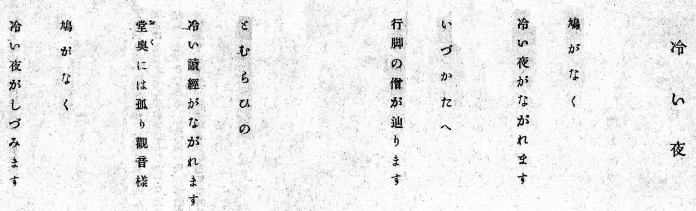 冷い夜
鳩がなく
冷い夜がながれます
いづかたへ
行脚の僧が辿ります
とむらひの
冷い讀經がながれます
堂奥には孤り觀音様
鳩がなく
冷い夜がしづみます